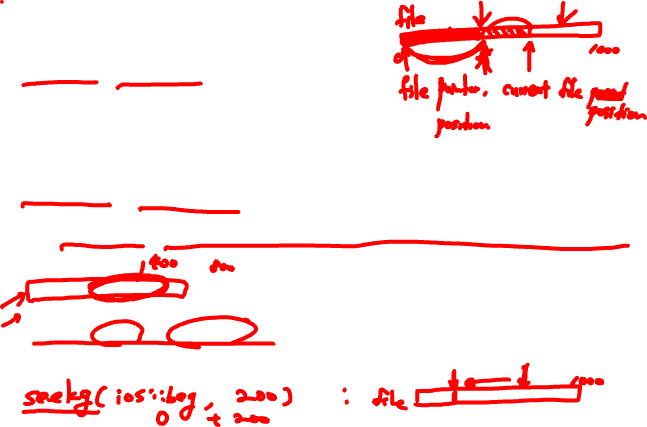 file
0 1000
file pointer, current file position
position
400 800
seekg( ios::beg , 200 ) : file 1000
0 + 200